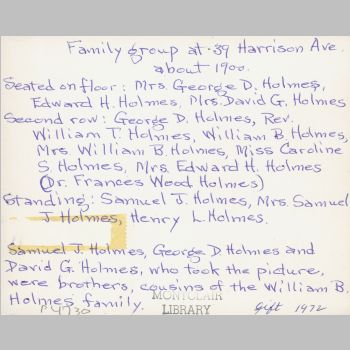 Family group at 39 Harrison Ave.
about 1900.
Seated on floor: Mrs. George D. Holmes,
Edward H. Holmes, Mrs. David G. Holmes
Second row: George D. Holmes, Rev.
William T. Holmes, William B. Holmes,
Mrs William B. Holmes, Miss Caroline
S. Holmes, Mrs. Edward H. Holmes
(Dr. Frances Wood Holmes)
Standing: Samuel J. Holmes, Mrs. Samuel
J. Holmes, Henry L. Holmes.
Samuel J. Holmes, George D. Holmes and
David G. Holmes, who took the picture,
were brothers, cousins of the William B.
Holmes family.
MONTCLAIR
LIBRARY
P 4730
Gift 1972